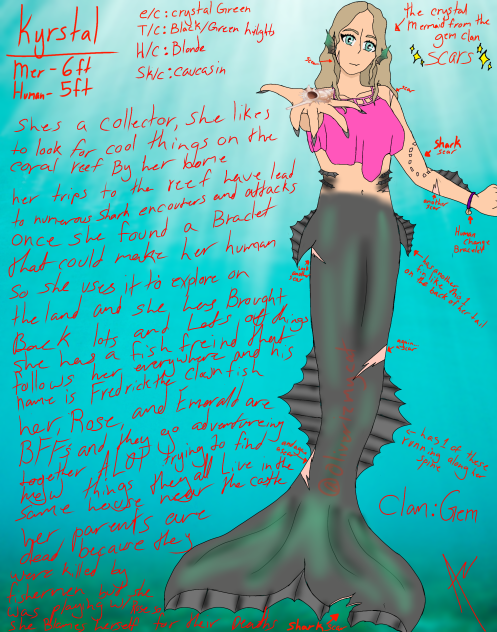 Kyrstal
Mer - 6ft
Human - 5ft
e/c: crystal Green
T/c: Black/Green hilights
H/c: Blonde
Sk/c: caucasin
the crystal
Mermaid from the
gem clan
SCARS
shes a collector, she likes
to look for cool things on the
coral reef By her home
her trips to the reef have lead
to numerous shark encounters and attacks
once she found a Braclet
that could make her human
so she uses it to explore on
the land and she has Brought
Back lots and Lots off things
she has a fish freind that
follows her everywhere and his
name is Fredrick the clownfish
her, Rose, and Emerald are
BFFs and they go adventureing
together ALOT trying to find
new things they all Live in the
same house near the castle
her parents are
dead because they
were killed by
fishermen, but she
was
she for their Death
scar
scar
shark
scar
another
scar
Human
change
Bracelet
has another
one like this
on the back of her tail
another
scar
again
scar
another
scar
has 1 of these
running along her
spine
Clan: Gem
shark